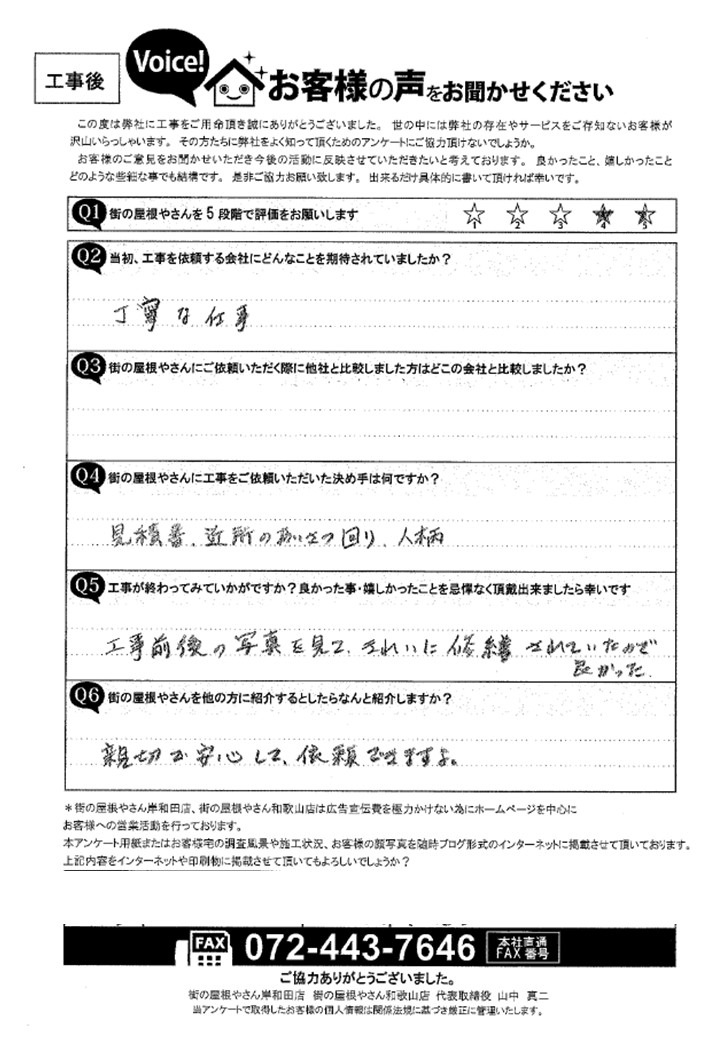 工事後
Voice!
お客様の声をお聞かせください
この度は弊社に工事をご用命頂き誠にありがとうございました。 世の中には弊社の存在やサービスをご存知ないお客様が
沢山いらっしゃいます。 その方たちに弊社をよく知って頂くためのアンケートにご協力頂けないでしょうか。
お客様のご意見をお聞かせいただき今後の活動に反映させていただきたいと考えております。 良かったこと、嬉しかったこと
どのような些細な事でも結構です。 是非ご協力お願い致します。 出来るだけ具体的に書いて頂ければ幸いです。
Q1 街の屋根やさんを5段階で評価をお願いします
1 2 3 4 5
Q2 当初、工事を依頼する会社にどんなことを期待されていましたか?
丁寧な仕事
Q3 街の屋根やさんにご依頼いただく際に他社と比較しました方はどこの会社と比較しましたか?
Q4 街の屋根やさんに工事をご依頼いただいた決め手は何ですか?
見積書、近所のあいさつ回り、人柄
Q5 工事が終わってみていかがですか?良かった事・嬉しかったことを忌憚なく頂戴出来ましたら幸いです
工事前後の写真を見て、きれいに修繕されていたので
良かった。
Q6 街の屋根やさんを他の方に紹介するとしたらなんと紹介しますか?
親切で安心して、依頼できますよ。
*街の屋根やさん岸和田店、街の屋根やさん和歌山店は広告宣伝費を極力かけない為にホームページを中心に
お客様への営業活動を行っております。
本アンケート用紙またはお客様宅の調査風景や施工状況、お客様の顔写真を随時ブログ形式のインターネットに掲載させて頂いております。
上記内容をインターネットや印刷物に掲載させて頂いてもよろしいでしょうか?
FAX 072-443-7646 本社直通
FAX番号
ご協力ありがとうございました。
街の屋根やさん岸和田店 街の屋根やさん和歌山店 代表取締役 山中 真二
当アンケートで取得したお客様の個人情報は関係法規に基づき厳正に管理いたします。